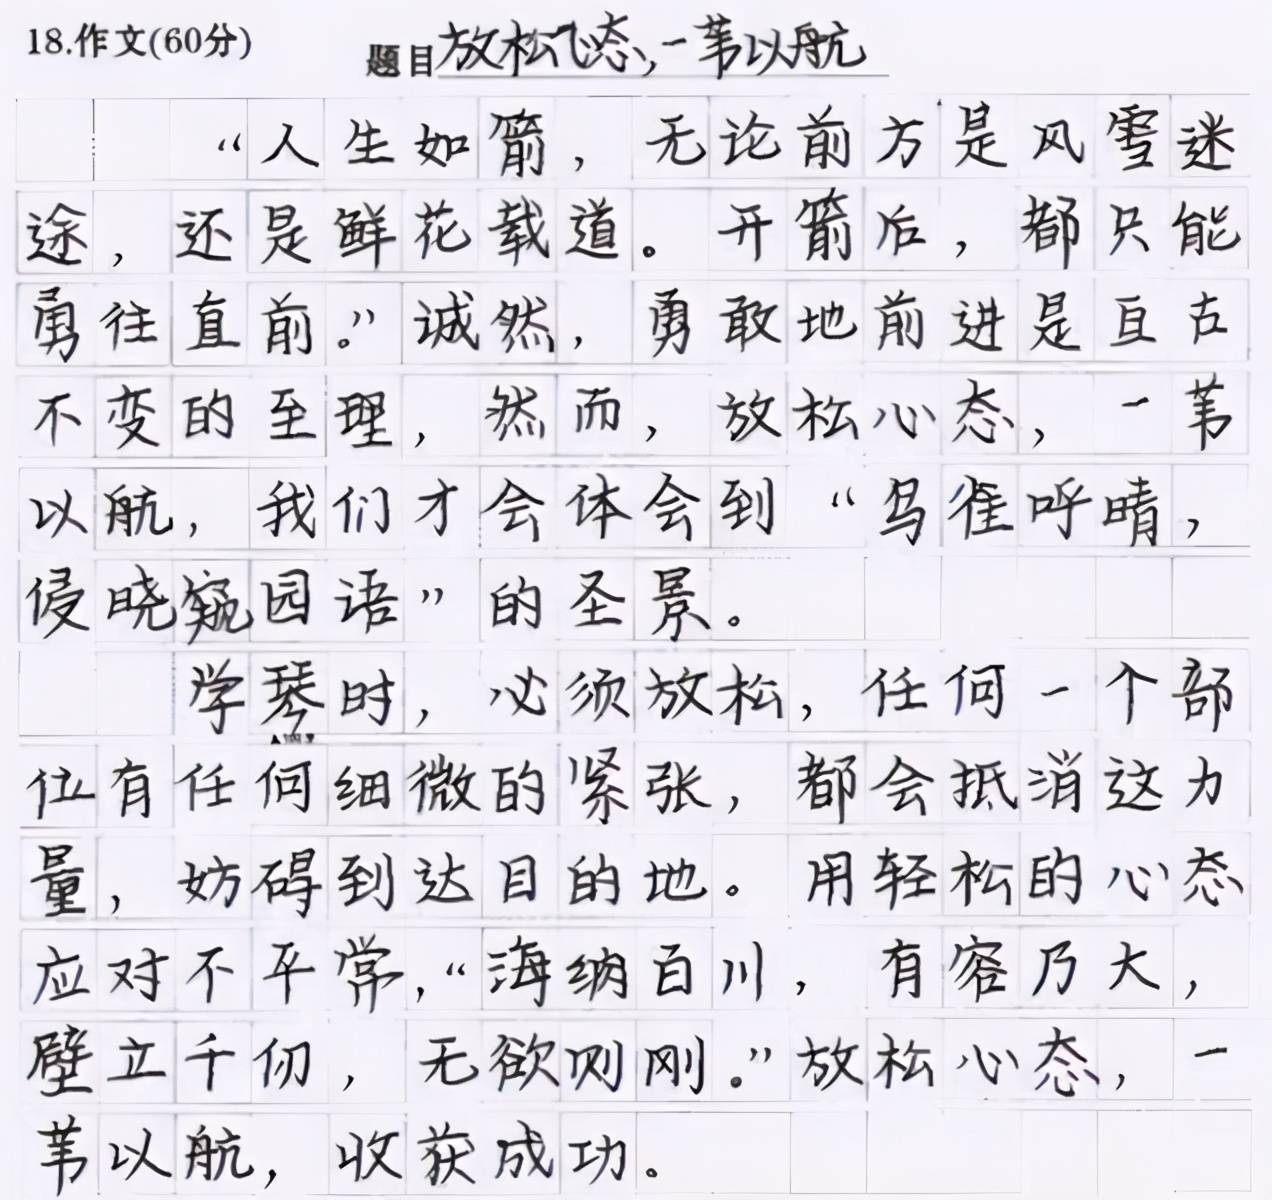 18.作文(60分) 题目 放松心态,一苇以航
“人生如箭,无论前方是风雪迷
途,还是鲜花载道。开箭后,都只能
勇往直前。”诚然,勇敢地前进是亘古
不变的至理,然而,放松心态,一苇
以航,我们才会体会到“乌雀呼晴,
侵晓窥园语”的圣景。
学琴时,必须放松,任何一个部
位有任何细微的紧张,都会抵消这力
量,妨碍到达目的地。用轻松的心态
应对不平常,“海纳百川,有容乃大,
壁立千仞,无欲则刚。”放松心态,一
苇以航,收获成功。